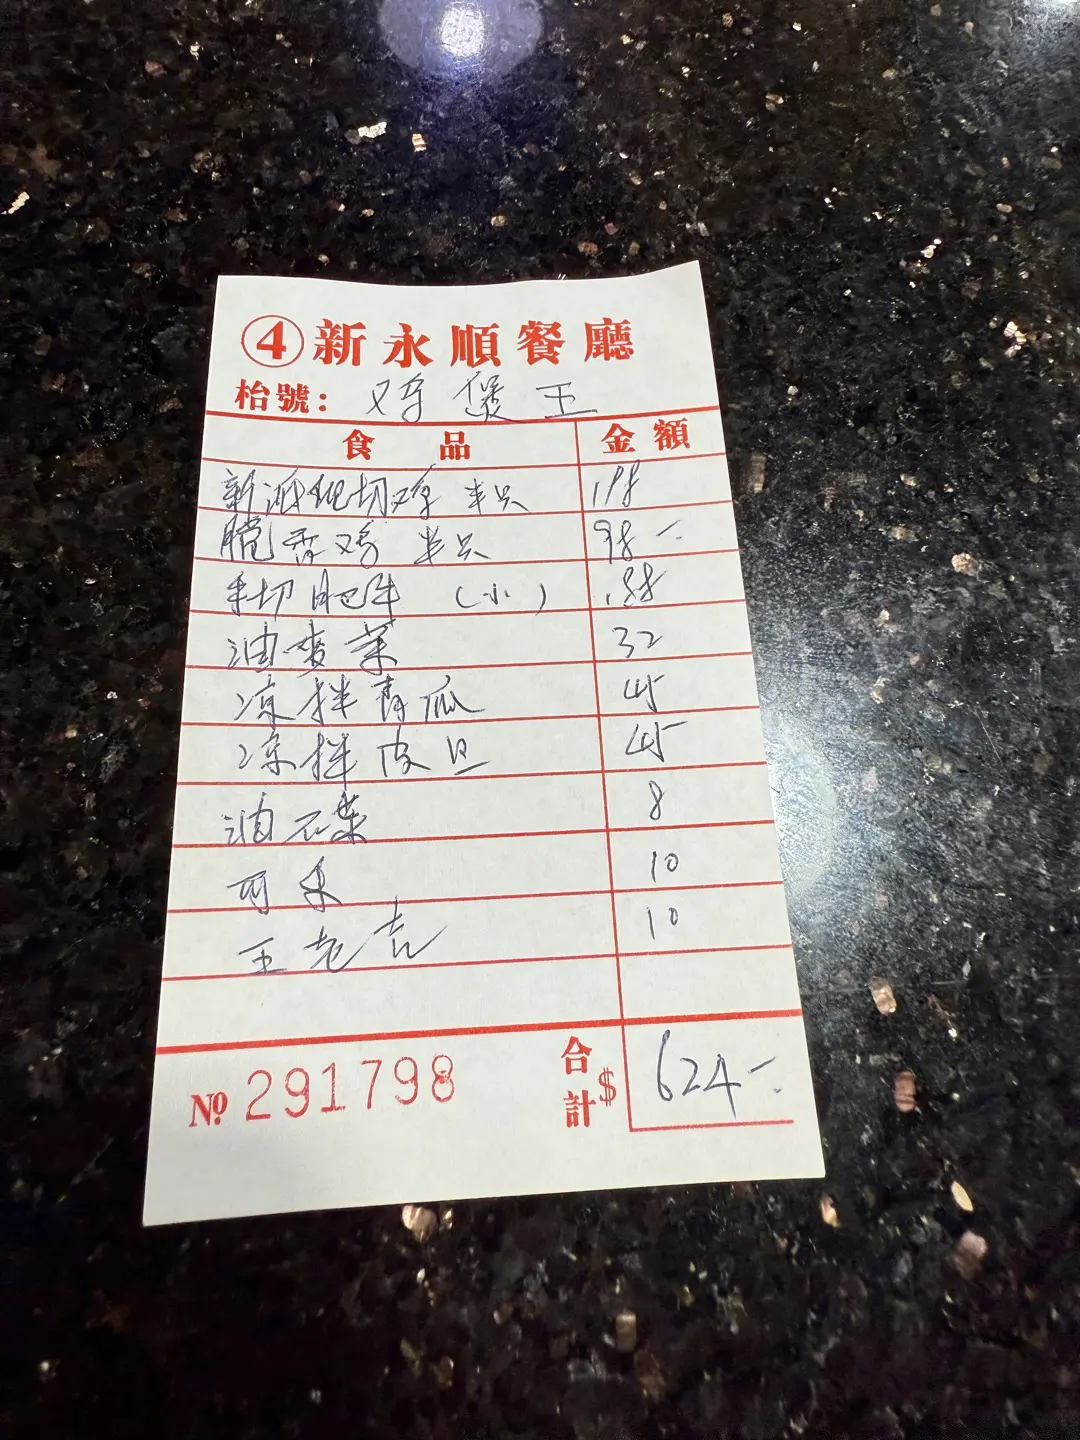 ④新永順餐廳
枱號: 鸡煲王
食品 金額
新派现切鸡 半只 188
香鸡 半只 98-
手切肥牛 (小) 188
油麥菜 32
凉拌青瓜 45
凉拌皮旦 45
油 8
可乐 10
王老吉 10
№ 291798 合計$ 624-